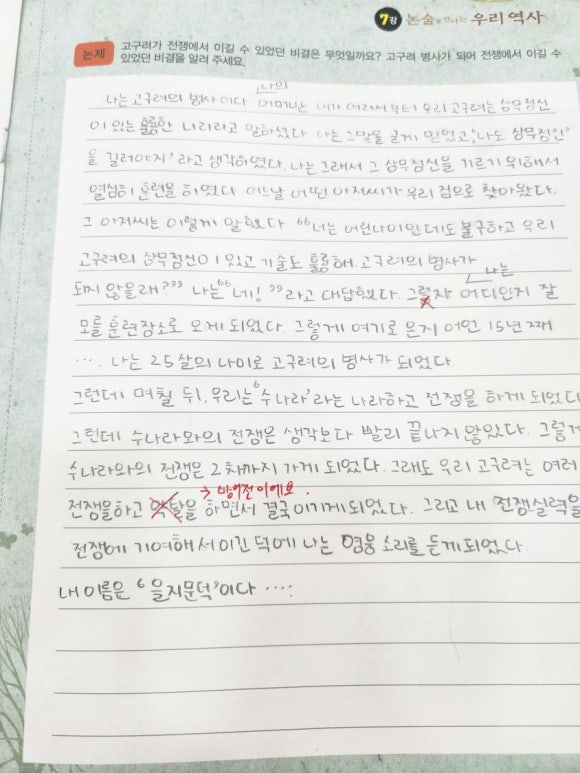 7강 논술로 만나는 우리 역사
논제 고구려가 전쟁에서 이길 수 있었던 비결은 무엇일까요? 고구려 병사가 되어 전쟁에서 이길 수
있었던 비결을 알려 주세요.
나의
나는 고구려의 병사이다 어머니는 내가 어려서부터 우리 고구려는 상무정신
이 있는 훌륭한 나라라고 말하셨다 나는 그말을 굳게 믿었고, '나도 상무정신'
을 길러야지'라고 생각하였다. 나는 그래서 그 상무정신을 기르기 위해서
열심히 훈련을 하였다 어느날 어떤 아저씨가 우리 집으로 찾아왔다.
그 아저씨는 이렇게 말했다 "너는 어린나이인데도 불구하고 우리
고구려의 상무정신이 있고 기술도 훌륭해. 고구려의 병사가
나는
되지 않을래?" 나는 "네!"라고 대답했다. 그러자 어디인지 잘
모를 훈련장소로 오게 되었다. 그렇게 여기로 온지 어언 15년 째
···. 나는 25살의 나이로 고구려의 병사가 되었다
그런데 며칠 뒤, 우리는 '수나라'라는 나라하고 전쟁을 하게 되었다
그런데 수나라와의 전쟁은 생각보다 빨리 끝나지 않았다. 그렇게
수나라와의 전쟁은 2차까지 가게 되었다. 그래도 우리 고구려는 여러
→ 방어전이에요.
전쟁을하고 약탈을 하면서 결국 이기게 되었다. 그리고 내 전쟁실력을
전쟁에 기여해서 이긴 덕에 나는 영웅 소리를 듣게되었다.
내 이름은 '을지문덕'이다 ····